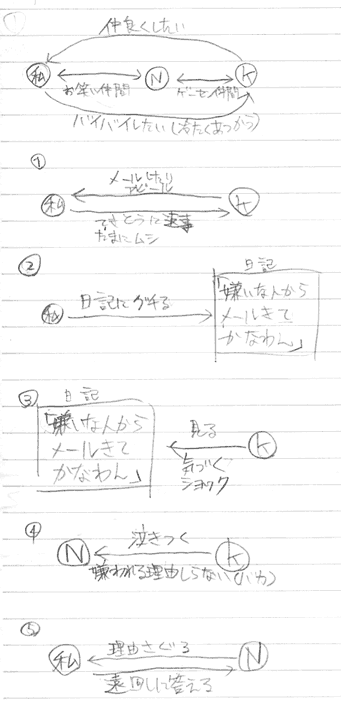 仲良くしたい
私 N K
お笑い仲間 ゲーセン仲間
バイバイしたい(冷たくあつかう)
①
メールしたり
アピール
私 K
てきとうに返事
たまにムシ
②
日記
日記にグチる
私
「嫌いな人から
メールきて
かなわん」
③
日記
「嫌いな人から
メールきて
かなわん」
見る
K
気づく
ショック
④
泣きつく
N K
嫌われる理由しらない(バカ)
⑤
理由さぐる
私 N
遠回しに答える